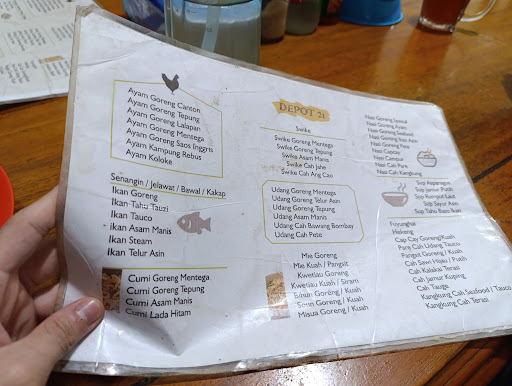 Ayam Goreng Canton
Ayam Goreng Tepung
Ayam Goreng Lalapan
Ayam Goreng Mentega
Ayam Goreng Saos Inggris
Ayam Kampung Rebus
Ayam Koloke
Senangin / Jelawat / Bawal / Kakap
Ikan Goreng
Ikan Tahu Tauzi
Ikan Tauco
Ikan Asam Manis
Ikan Steam
Ikan Telur Asin
Cumi Goreng Mentega
Cumi Goreng Tepung
Cumi Asam Manis
Cumi Lada Hitam
DEPOT 21
Swike
Swike Goreng Mentega
Swike Goreng Tepung
Swike Asam Manis
Swike Cah Jahe
Swike Cah Ang Cao
Udang Goreng Mentega
Udang Goreng Telur Asin
Udang Goreng Tepung
Udang Asam Manis
Udang Cah Bawang Bombay
Udang Cah Pete
Mie Goreng
Mie Kuah / Pangsit
Kwetiau Goreng
Kwetiau Kuah / Siram
Bihun Goreng / Kuah
Soun Goreng / Kuah
Misua Goreng / Kuah
Nasi Goreng Spesial
Nasi Goreng Ayam
Nasi Goreng Seafood
Nasi Goreng Ikan Asin
Nasi Goreng Pete
Nasi Capcay
Nasi Campur
Nasi Cah Pare
Nasi Cah Kangkung
Sop Asparagus
Sop Jamur Putih
Sop Rumput Laut
Sop Sayur Asin
Sop Tahu Baso Ikan
Fuyunghai
Hekeng
Cap Cay Goreng/Kuah
Pare Cah Udang Tauco
Pangsit Goreng / Kuah
Cah Sawi Hijau / Putih
Cah Kailan Terasi
Cah Jamur Kuping
Cah Tauge
Kangkung Cah Seafood / Tauco
Kangkung Cah Terasi